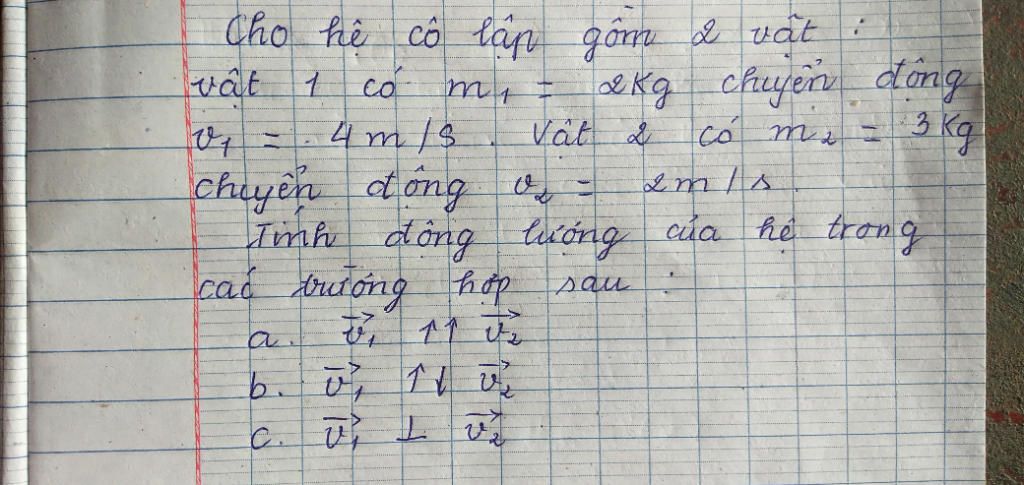 Cho hệ cô lập gồm 2 vật :
vật 1 có m₁ = 2Kg chuyển động
v₁ = 4m/s. Vật 2 có m₂ = 3Kg
chuyển động v₂ = 2m/s.
Tính động lượng của hệ trong
các trường hợp sau :
a. v₁⃗ ↑↑ v₂⃗
b. v₁⃗ ↑↓ v₂⃗
c. v₁⃗ ⊥ v₂⃗